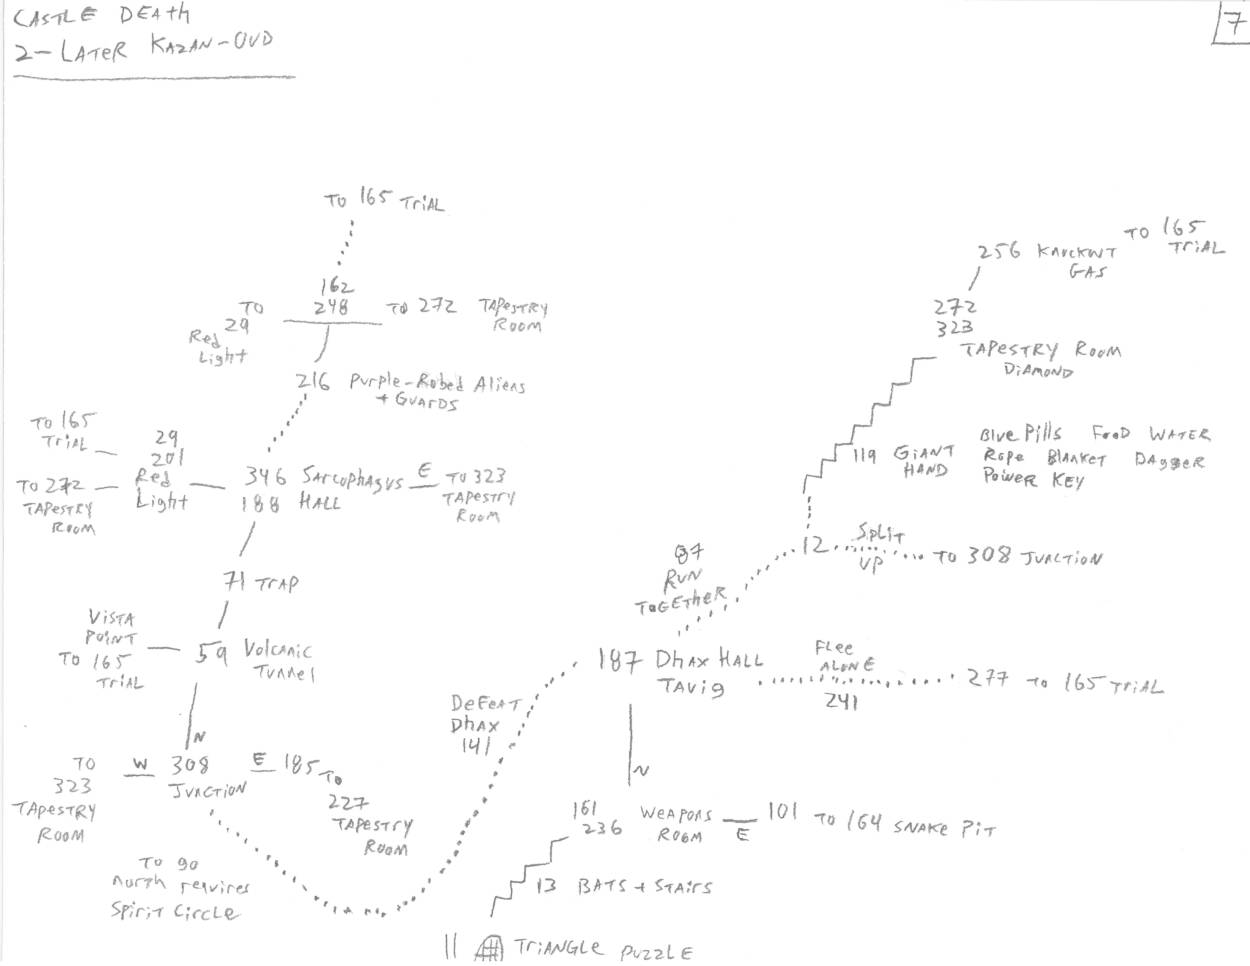 CASTLE DEATH
2-LATER KAZAN-OUD
7
TO 165 TRIAL
162
248
TO
29
Red
Light
TO 272 TAPESTRY
ROOM
216 PURPLE-Robed Aliens
+ GUARDS
TO 165
TRIAL
29
201
Red
Light
TO 272
TAPESTRY
ROOM
346 SARCOPHAGUS
188 HALL
E
TO 323
TAPESTRY
ROOM
71 TRAP
VISTA
POINT
TO 165
TRIAL
59 Volcanic
Tunnel
N
TO
323
TAPESTRY
ROOM
W
308
JUNCTION
E
185 TO
227
TAPESTRY
ROOM
TO 90
North requires
Spirit Circle
DEFEAT
DHAX
141
187 DHAX HALL
TAVIG
87
RUN
TOGETHER
12
SPLIT
UP
TO 308 JUNCTION
FLEE
ALONE
241
277 TO 165 TRIAL
119 GIANT
HAND
Blue Pills FOOD WATER
Rope BLANKET DAGGER
POWER KEY
256 KNCKWT
GAS
TO 165
TRIAL
272
323
TAPESTRY ROOM
DIAMOND
N
161
236
WEAPONS
ROOM
E
101 TO 164 SNAKE PIT
13 BATS + STAIRS
11 TRIANGLE PUZZLE